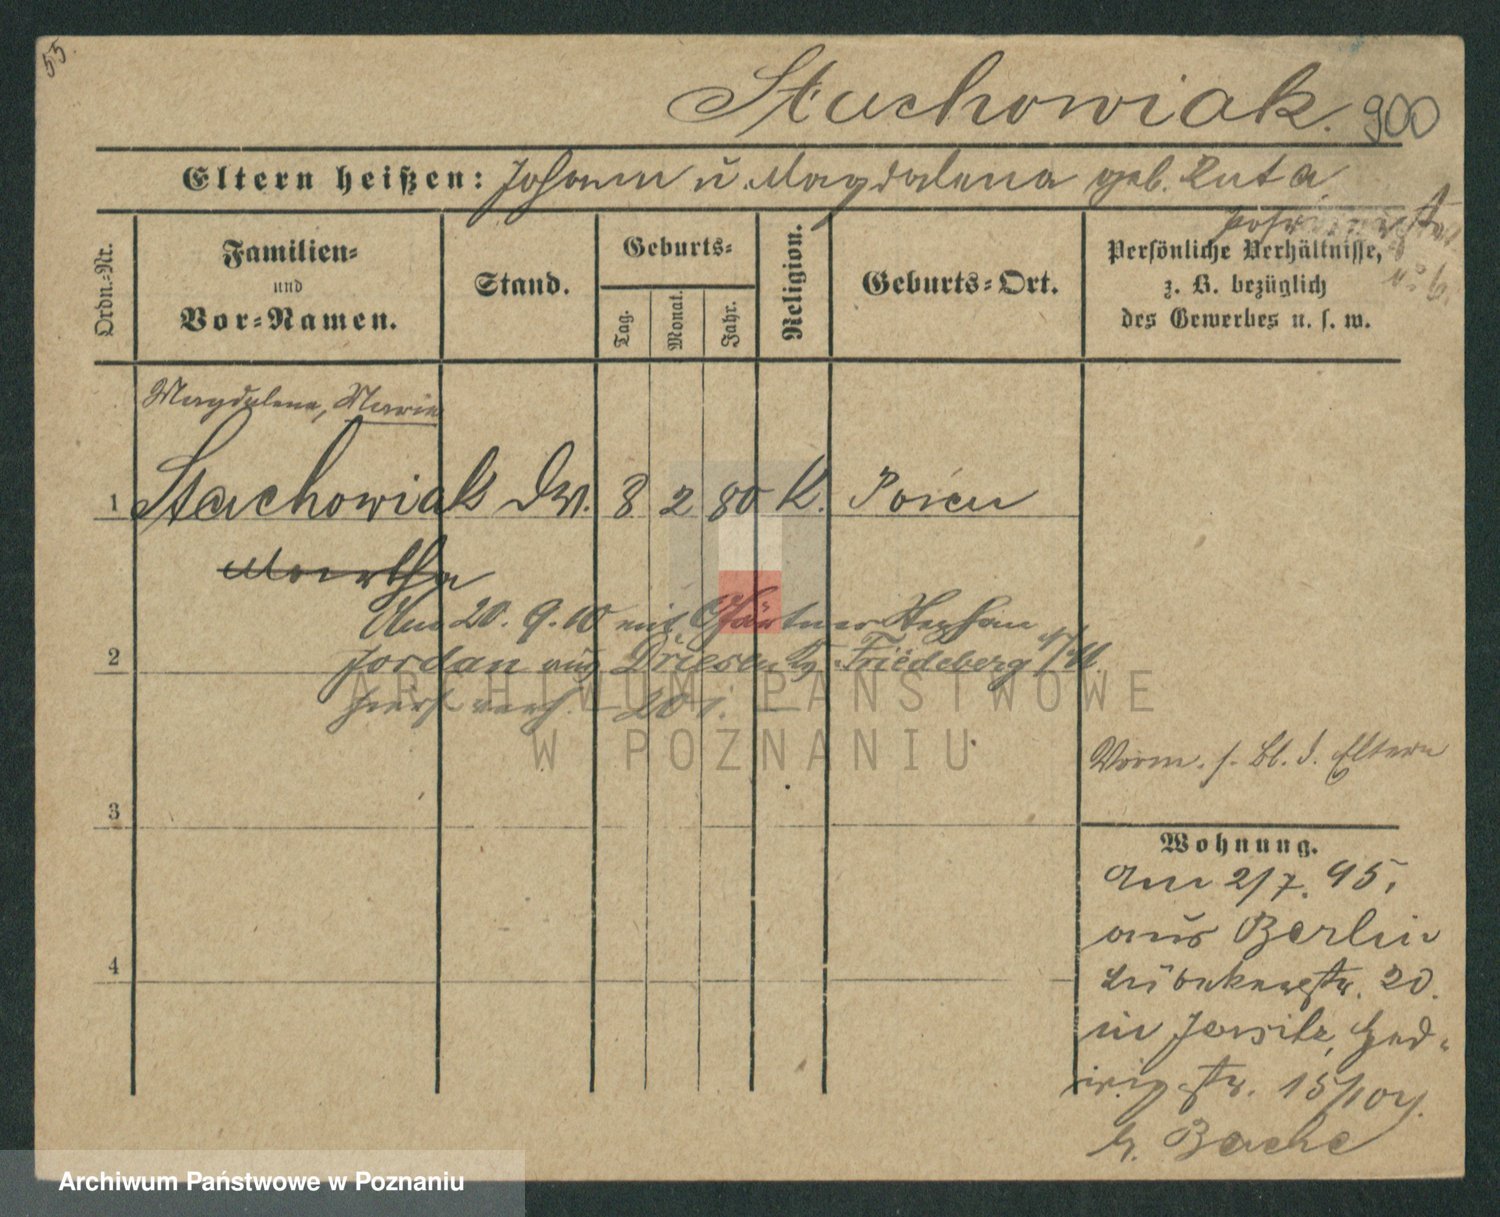 55
Stachowiak. 900
Eltern heißen: Johann u Magdalena geb. Ruta
Ordn.-Nr.
Familien-
und
Vor-Namen.
Stand.
Geburts-
Tag.
Monat.
Jahr.
Religion.
Geburts-Ort.
Persönliche Verhältnisse,
z. B. bezüglich
des Gewerbes u. s. w.
Magdalena, Marie
1 Stachowiak 8. 2 80 K. Posen
Martha
Am 20. 9. 10 mit Gärtner Stephan
2 Jordan aus Driesen Kr. Friedeberg
hier verh.
ARCHIWUM PAŃSTWOWE
W POZNANIU
Vorm. s. Bl. d. Eltern
3
Wohnung.
Am 2/7. 95.
aus Berlin
4
Lübekerstr. 20.
in Jersitz, Hed-
wigstr. 15
b. Bache
Archiwum Państwowe w Poznaniu